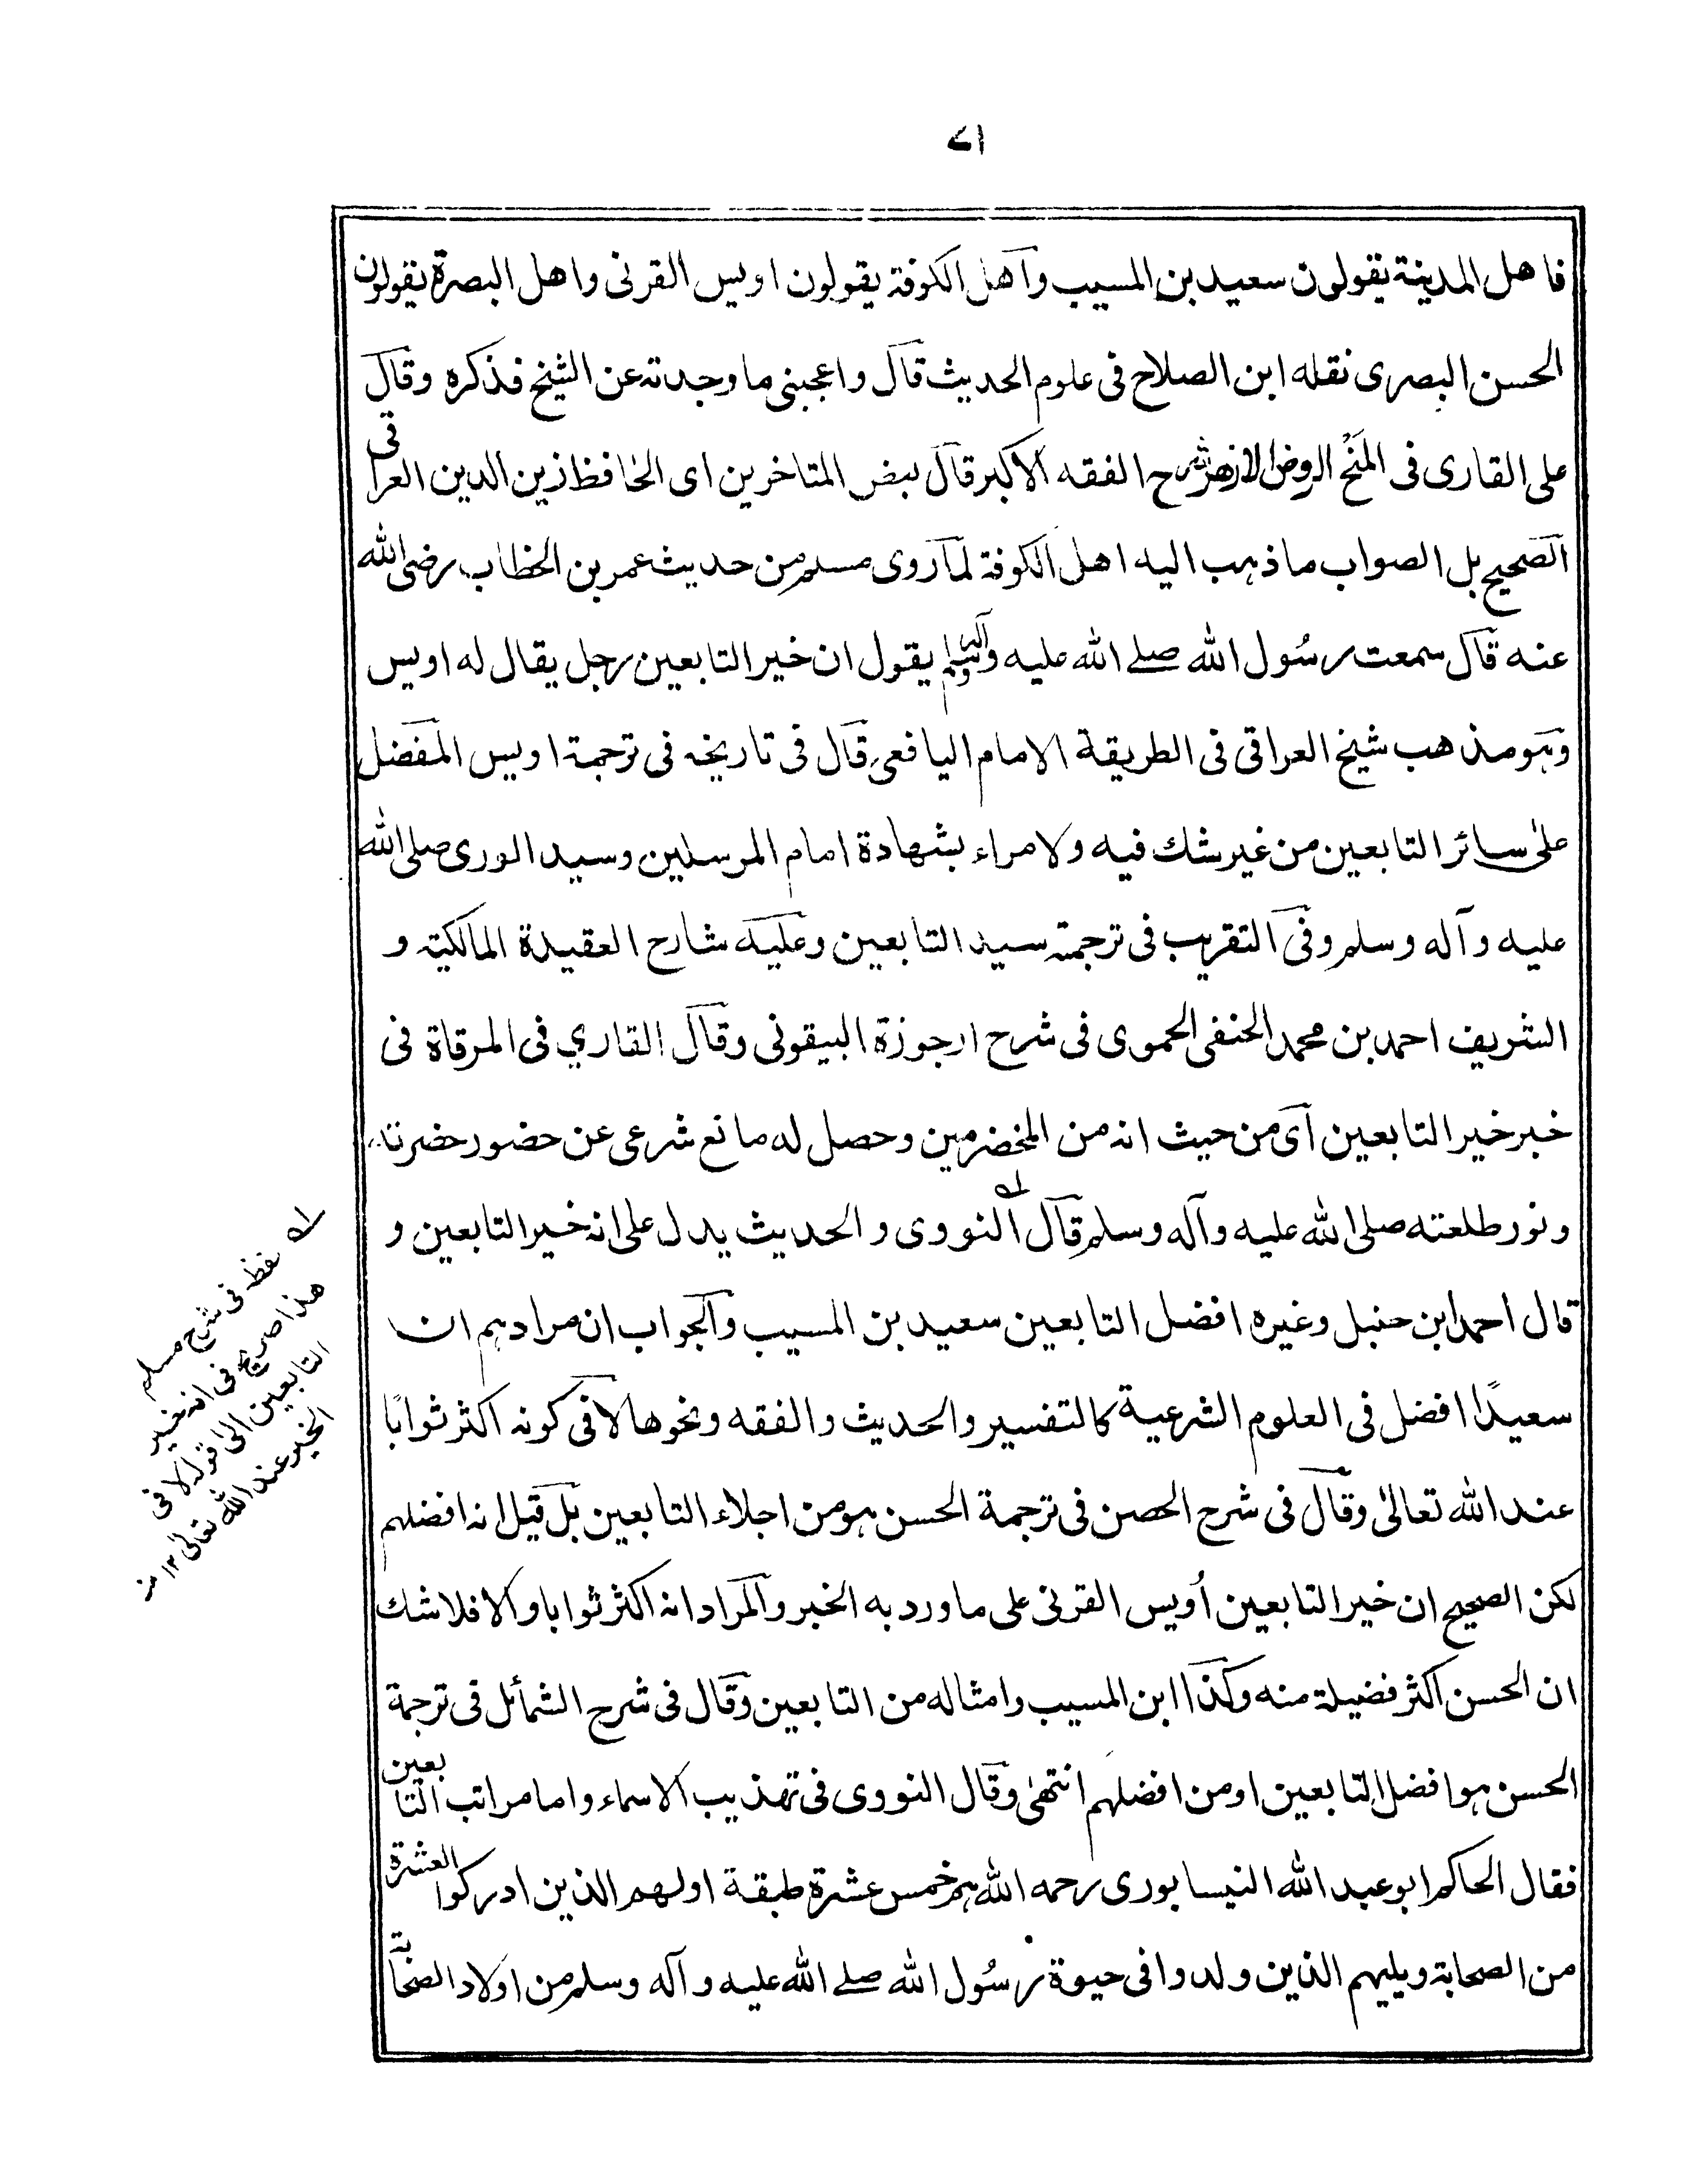 ۷۱
فاهل المدينة يقولون سعيد بن المسيب وآهل الكوفة يقولون اويس القرنى واهل البصرة يقولون
الحسن البصرى نقله ابن الصلاح فى علوم الحديث قال واعجبنى ما وجدته عن الشيخ فذكره وقال
على القارى فى المنَحْ الروض الازهر شرح الفقه الاكبر قال بعض المتاخرين اى الحافظ زين الدين العراقى
الصحيح بل الصواب ما ذهب اليه اهل الكوفة لما روى مسلم من حديث عمر بن الخطاب رضى الله
عنه قال سمعت رسُول الله صلے الله عليه وآله وسلم يقول ان خير التابعين رجل يقال له اويس
وهو مذهب شيخ العراقى فى الطريقة الامام اليافعى قال فى تاريخه فى ترجمة اويس المفضل
علىٰ سائر التابعين من غير شك فيه ولا مراء بشهادة امام المرسلين وسيد الورى صلى الله
عليه وآله وسلم وفى التقريب فى ترجمته سيد التابعين وعليه شارح العقيدة المالكية و
الشريف احمد بن محمد الحنفى الحموى فى شرح ارجوزة البيقونى وقال القاري فى المرقاة فى
خبر خير التابعين آى من حيث انه من المخضرمين وحصل له مانع شرعى عن حضور حضرته
ونور طلعته صلى الله عليه وآله وسلم قال النووى والحديث يدل على انه خير التابعين و
قال احمد ابن حنبل وغيره افضل التابعين سعيد بن المسيب والجواب ان مرادهم ان
سعيدًا افضل فى العلوم الشرعية كالتفسير والحديث والفقه ونحوها لا فى كونه اكثر ثوابًا
عند الله تعالىٰ وقال فى شرح الحصن فى ترجمة الحسن هو من اجلاء التابعين بل قيل انه افضلهم
لكن الصحيح ان خير التابعين أويس القرنى على ما ورد به الخبر والمراد انه اكثر ثوابا والا فلا شك
ان الحسن اكثر فضيلة منه وكذا ابن المسيب وامثاله من التابعين وقال فى شرح الشمائل فى ترجمة
الحسن هو افضل التابعين او من افضلهم انتهىٰ وقال النووى فى تهذيب الاسماء واما مراتب التابعين
فقال الحاكم ابو عبد الله النيسابورى رحمه الله هم خمس عشرة طبقة اولهم الذين ادركوا العشرة
من الصحابة ويليهم الذين ولدوا فى حيوة رسُول الله صلے الله عليه وآله وسلم من اولاد الصحابة
فى شرح مسلم
هذا صريح فى انه خير
التابعين الىٰ قوله لا فى
الخير عند الله تعالىٰ ۱۲ منه